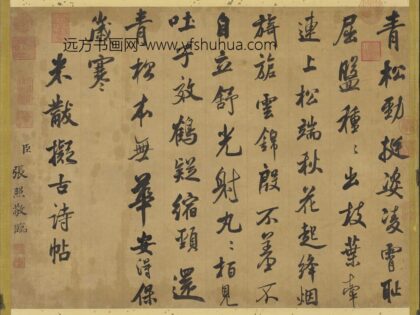 远方书画网 www.yfshuhua.com
青松勁挺姿凌霄恥
屈盤種〻出枝葉牽
連上松端秋花起絳烟
旖旎雲錦殷不羞不
自立舒光射丸〻栢見
吐子效鶴疑縮頸還
青松本無華安得保
歲寒
米黻擬古诗帖
臣張照敬臨